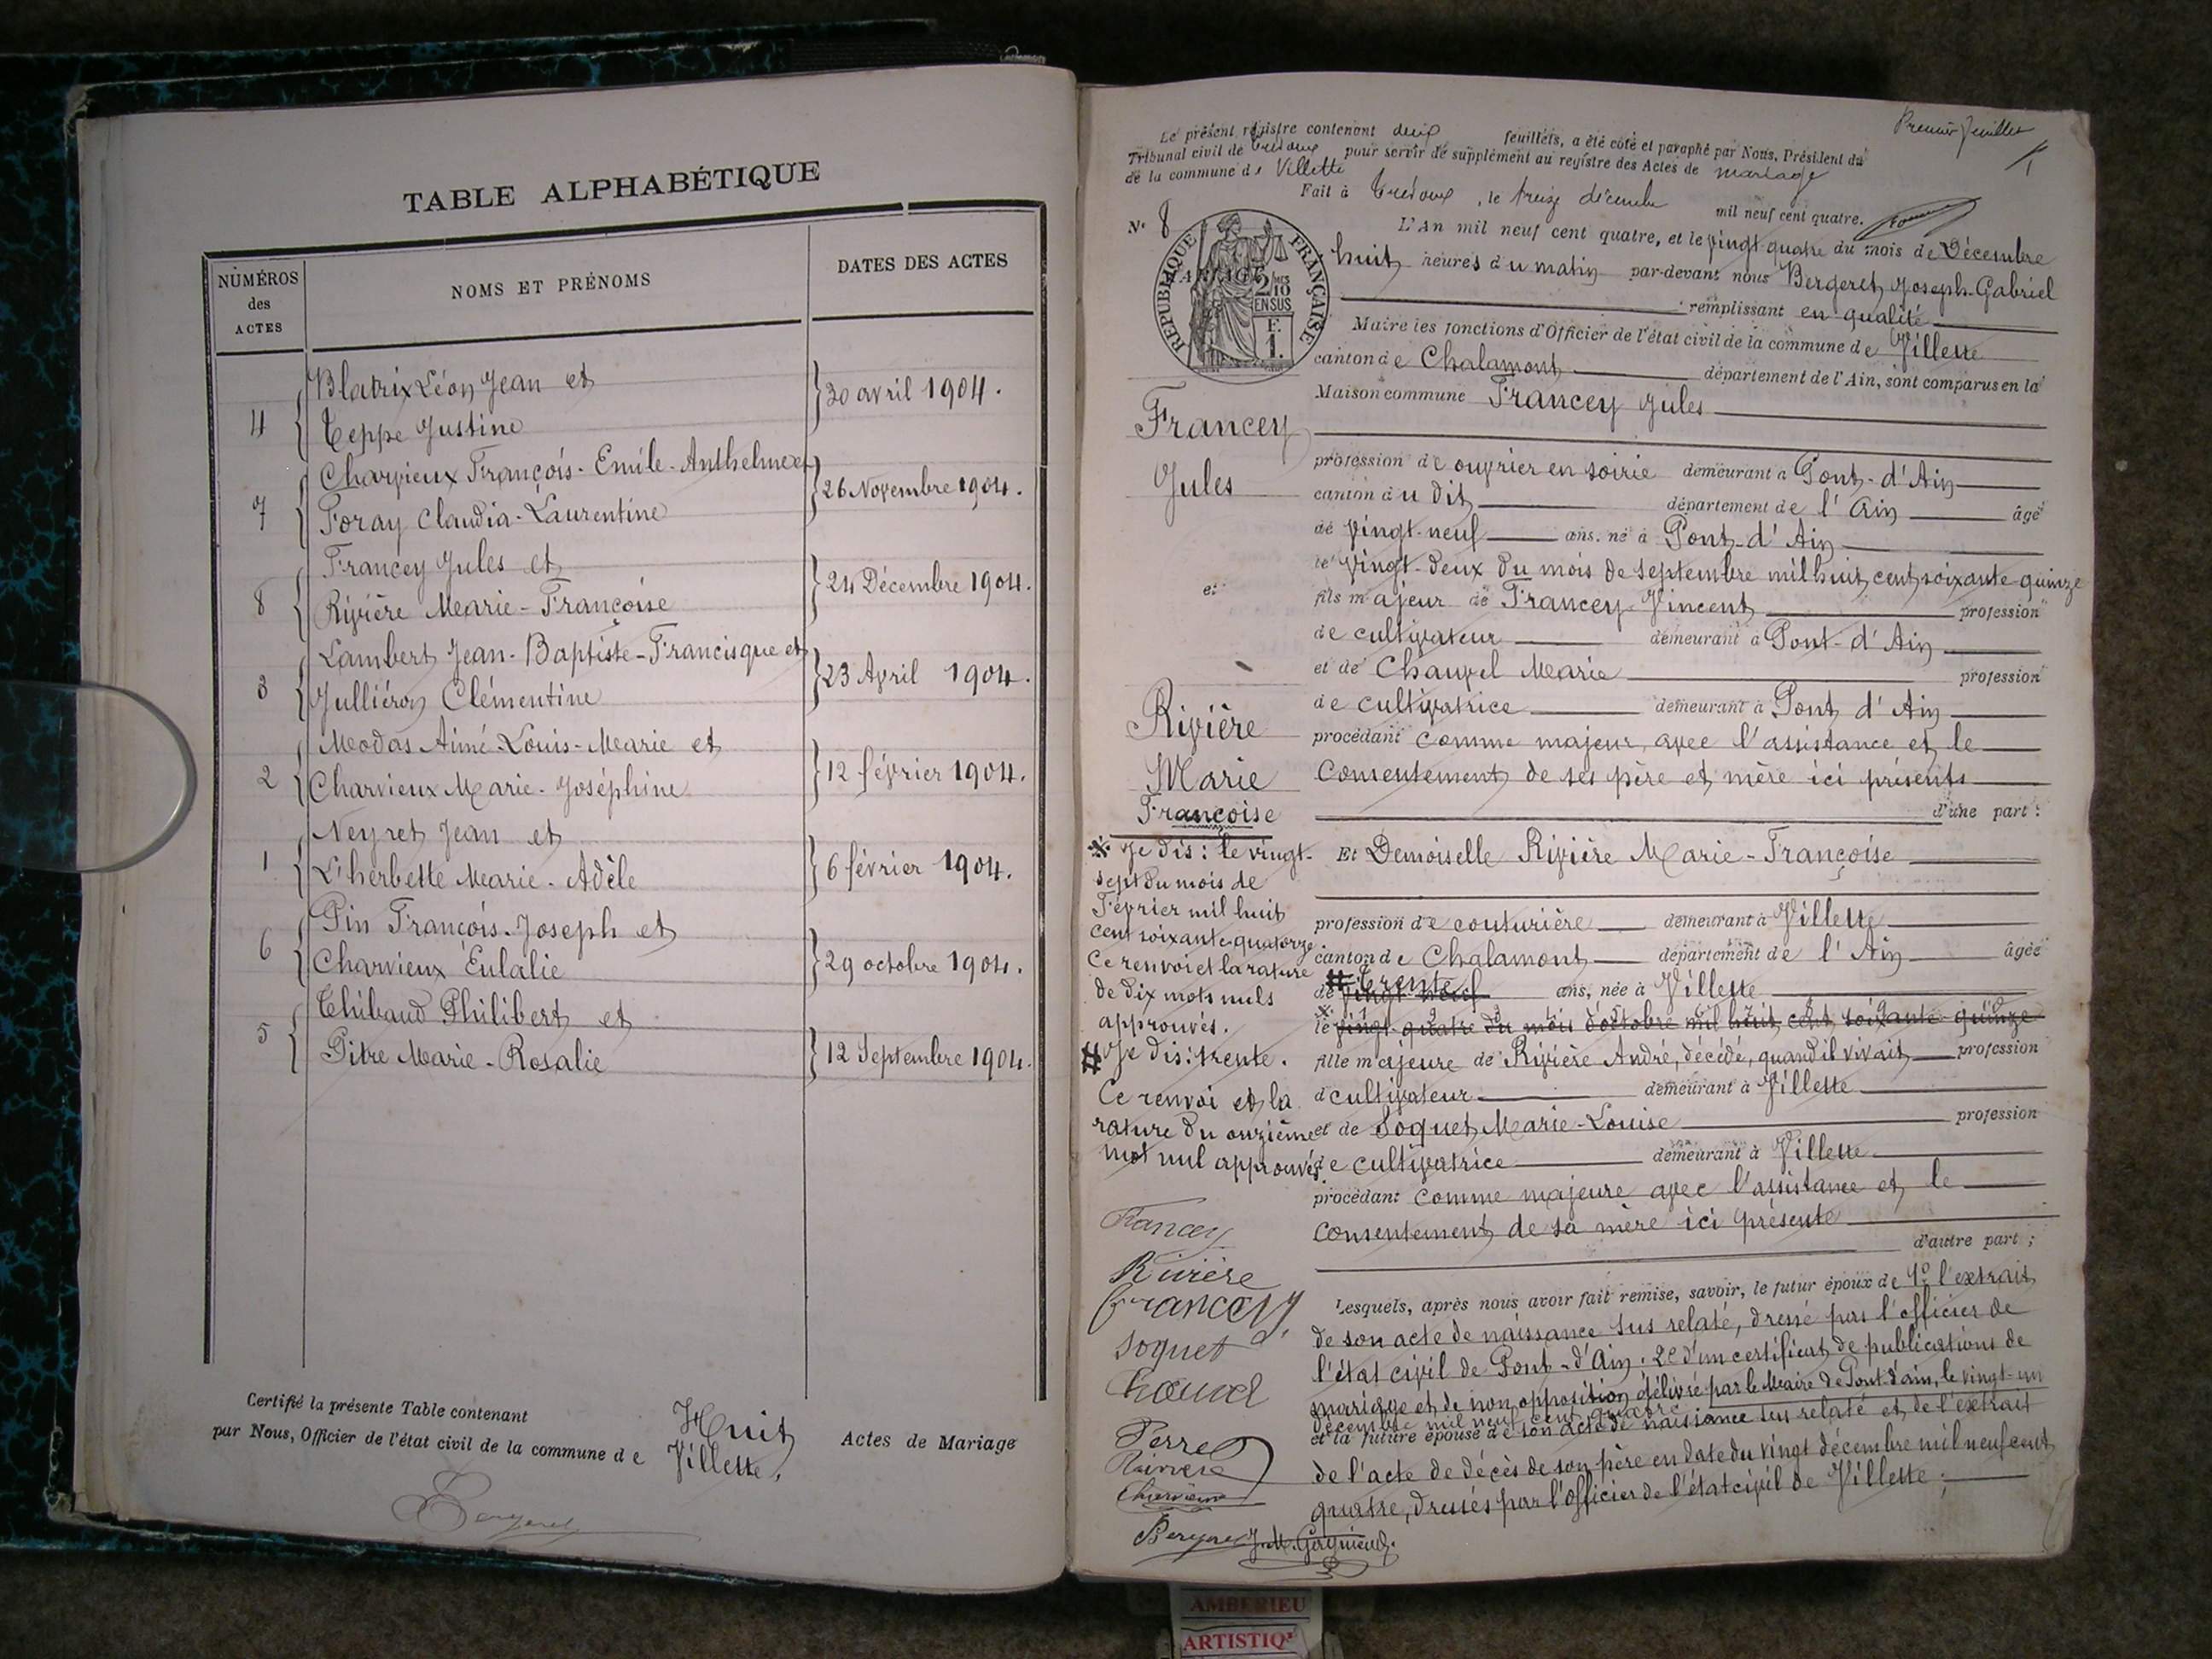 TABLE ALPHABÉTIQUE
NUMÉROS
des
ACTES
NOMS ET PRÉNOMS
DATES DES ACTES
Blatrix Léon Jean et
4 30 avril 1904.
Teppe Justine
Charvieux François-Emile-Anthelme et
7 26 Novembre 1904.
Foray Claudia-Laurentine
Francey Jules et
8 24 Décembre 1904.
Rivière Marie-Françoise
Lambert Jean-Baptiste-Francisque et
3 23 Avril 1904.
Julliéron Clémentine
Modas Aimé-Louis-Marie et
2 12 février 1904.
Charvieux Marie-Joséphine
Neyret Jean et
1 6 février 1904.
L'herbette Marie-Adèle
Pin François-Joseph et
6 29 octobre 1904.
Charvieux Eulalie
Thibaud Philibert et
5 12 Septembre 1904.
Pitre Marie-Rosalie
Certifié la présente Table contenant Huit Actes de Mariage
par Nous, Officier de l'état civil de la commune de Villette.
Bergeret
Premier feuillet
Le présent registre contenant deux feuillets, a été coté et paraphé par Nous, Président du
Tribunal civil de Trévoux pour servir de supplément au registre des Actes de mariage
de la commune de Villette
Fait à Trévoux, le treize décembre mil neuf cent quatre.
N° 8
RÉPUBLIQUE FRANÇAISE
2/10
EN SUS
F.
1.
L'An mil neuf cent quatre, et le vingt quatre du mois de Décembre
huit heures du matin par-devant nous Bergeret Joseph-Gabriel
remplissant en qualité
Maire les fonctions d'Officier de l'état civil de la commune de Villette
canton de Chalamont département de l'Ain, sont comparus en la
Maison commune Francey Jules
Francey
Jules
et
Rivière
Marie
Françoise
profession de ouvrier en soirie demeurant à Pont-d'Ain
canton du dit département de l'Ain âgé
de vingt-neuf ans. né à Pont-d'Ain
le vingt-deux du mois de septembre mil huit cent soixante-quinze
fils majeur de Francey Vincent profession
de cultivateur demeurant à Pont-d'Ain
et de Chauvel Marie profession
de cultivatrice demeurant à Pont d'Ain
procédant comme majeur, avec l'assistance et le
consentement de ses père et mère ici présents
d'une part :
Et Demoiselle Rivière Marie-Françoise
profession de couturière demeurant à Villette
canton de Chalamont département de l'Ain âgée
de vingt-neuf # trente ans, née à Villette
le vingt-quatre du mois d'octobre mil huit cent soixante-quinze
fille majeure de Rivière André, décédé, quand il vivait profession
de cultivateur demeurant à Villette
et de Soquet Marie-Louise profession
de cultivatrice demeurant à Villette
procédant comme majeure avec l'assistance et le
consentement de sa mère ici présente
d'autre part ;
Lesquels, après nous avoir fait remise, savoir, le futur époux de 1° l'extrait
de son acte de naissance sus relaté, dressé par l'officier de
l'état civil de Pont-d'Ain. 2° d'un certificat de publications de
mariage et de non opposition délivré par le Maire de Pont-d'ain, le vingt-un
décembre mil neuf cent quatre
et la future épouse de son acte de naissance sus relaté et de l'extrait
de l'acte de décès de son père en date du vingt décembre mil neuf cent
quatre, dressés par l'officier de l'état civil de Villette ;
* Je dis : le vingt-
sept du mois de
Février mil huit
cent soixante-quatorze
Ce renvoi et la rature
de dix mots nuls
approuvés.
# Je dis : trente.
Ce renvoi et la
rature du onzième
mot nul approuvés.
Francey
Rivière
Francey
Soquet
Perret
Rivière
Charvieux
Bergeret
AMBERIEU
ARTISTIQ